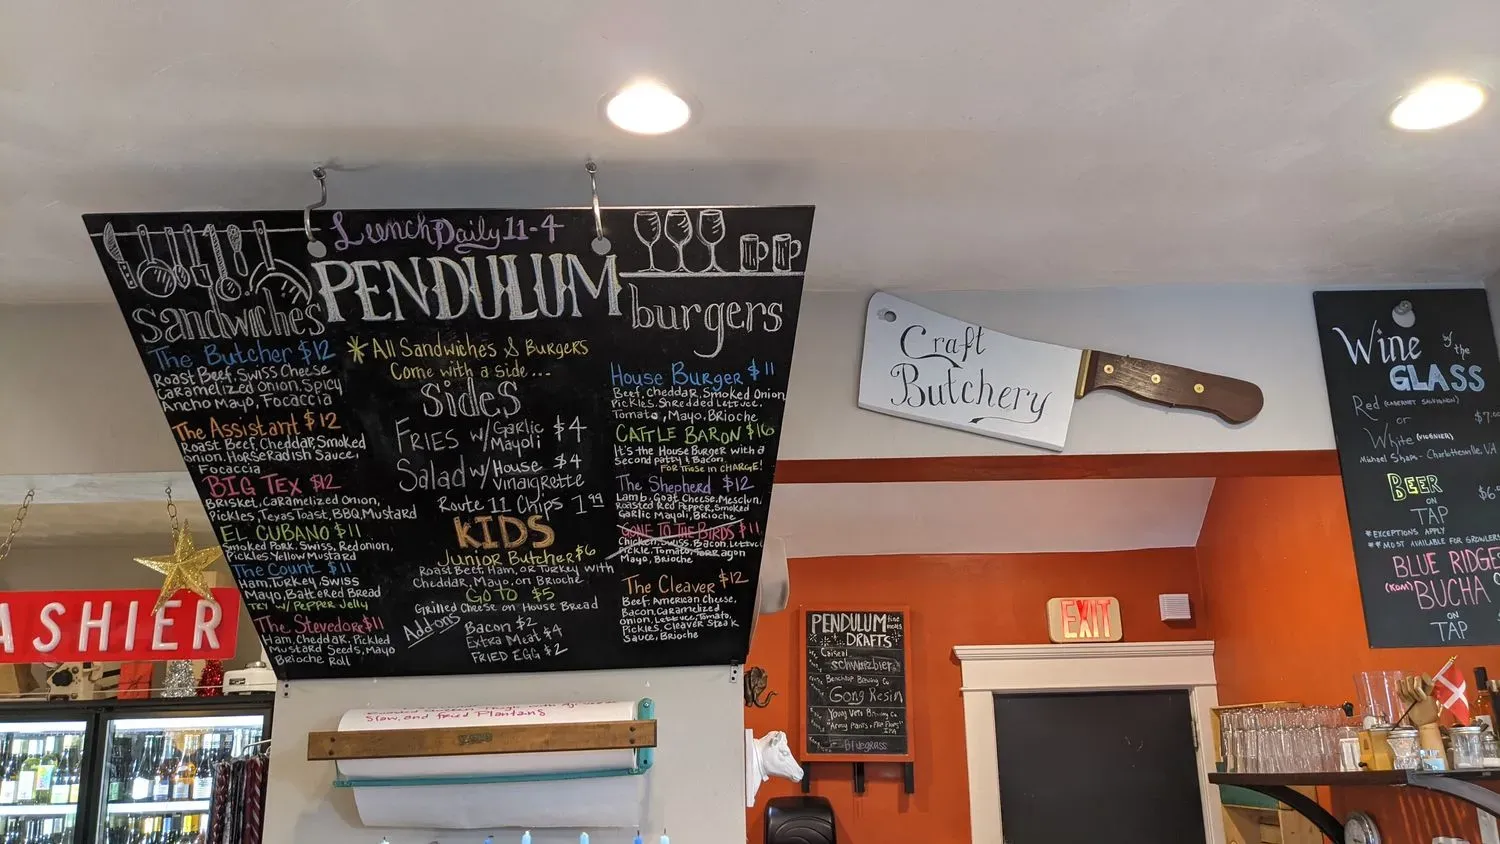 Lunch Daily 11-4
PENDULUM
sandwiches
The Butcher $12
Roast Beef, Swiss Cheese
Caramelized Onion, Spicy
Ancho Mayo, Focaccia
The Assistant $12
Roast Beef, Cheddar, Smoked
onion, Horseradish Sauce,
Focaccia
BIG TEX $12
Brisket, Caramelized Onion,
Pickles, Texas Toast, BBQ, Mustard
EL CUBANO $11
Smoked Pork, Swiss, Red onion,
Pickles, Yellow Mustard
The Count $11
Ham, Turkey, Swiss
Mayo, Battered Bread
TRY W/ PEPPER JELLY
The Stevedore $11
Ham, Cheddar, Pickled
Mustard Seeds, Mayo
Brioche Roll
*All Sandwiches & Burgers
Come with a side...
Sides
FRIES w/ Garlic Mayoli $4
Salad w/ House Vinaigrette $4
Route 11 Chips 1.99
KIDS
Junior Butcher $6
Roast Beef, Ham, or Turkey with
Cheddar, Mayo, on Brioche
GO TO $5
Grilled Cheese on House Bread
Addons
Bacon $2
Extra Meat $4
FRIED EGG $2
burgers
House Burger $11
Beef, Cheddar, Smoked Onion
Pickles, Shredded Lettuce,
Tomato, Mayo, Brioche
CATTLE BARON $16
It's the House Burger with a
second patty & Bacon
FOR Those in CHARGE!
The Shepherd $12
Lamb, Goat Cheese, Mesclun,
Roasted Red Pepper, Smoked
Garlic Mayoli, Brioche
GONE TO THE BIRDS $11
Chicken, Swiss, Bacon, Lettuce
Pickle, Tomato, Tarragon
Mayo, Brioche
The Cleaver $12
Beef, American Cheese,
Bacon, Caramelized
onion, Lettuce, Tomato,
Pickles, Cleaver Steak
Sauce, Brioche
Craft
Butchery
Wine by the
GLASS
Red (CABERNET SAUVIGNON)
or
White (VIOGNIER)
Michael Shaps - Charlottesville, VA
BEER
ON
TAP
*EXCEPTIONS APPLY
**MOST AVAILABLE FOR GROWLERS
BLUE RIDGE
(KOM) BUCHA
ON
TAP
ASHIER
EXIT
PENDULUM fine meats
DRAFTS
schwarzbier
Benchtop Brewing Co
Gong Resin
Young Vets Brewing Co
Bluegrass
Slaw, and fried Plantans